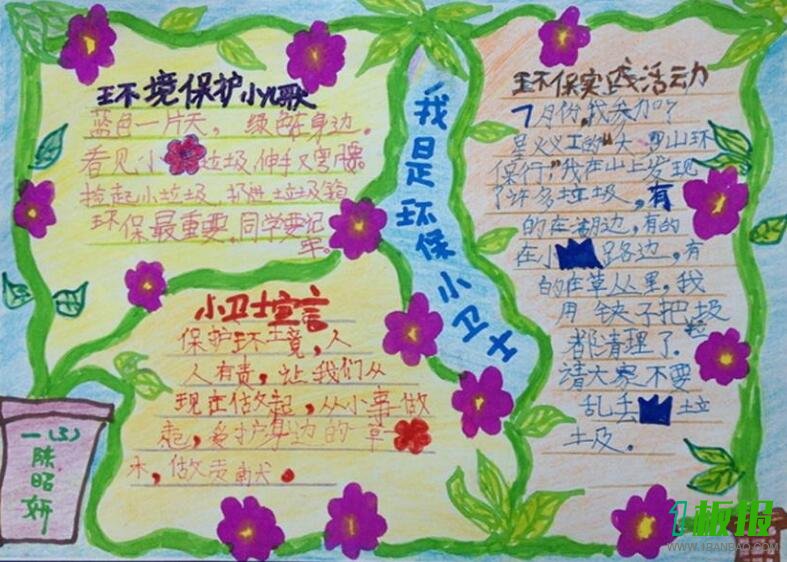 环境保护小儿歌
蓝色一片天，绿色在身边。
看见小垃圾，伸手又弯腰
捡起小垃圾，扔进垃圾箱
环保最重要，同学要记
牢。
小卫士宣言
保护环境，人
人有责，让我们从
现在做起，从小事做
起，爱护身边的一草
木，做贡献。
我是环保小卫士
环保实践活动
7月份，我参加了
星火义工的“大罗山环
保行，我在山上发现
了许多垃圾，有
的在湖边，有的
在小路边，有
的在草丛里，我
用铗子把垃圾
都清理了。
请大家不要
乱丢垃
圾。
一(5)
陈昭妍
1板报
WWW.1BANBAO.COM